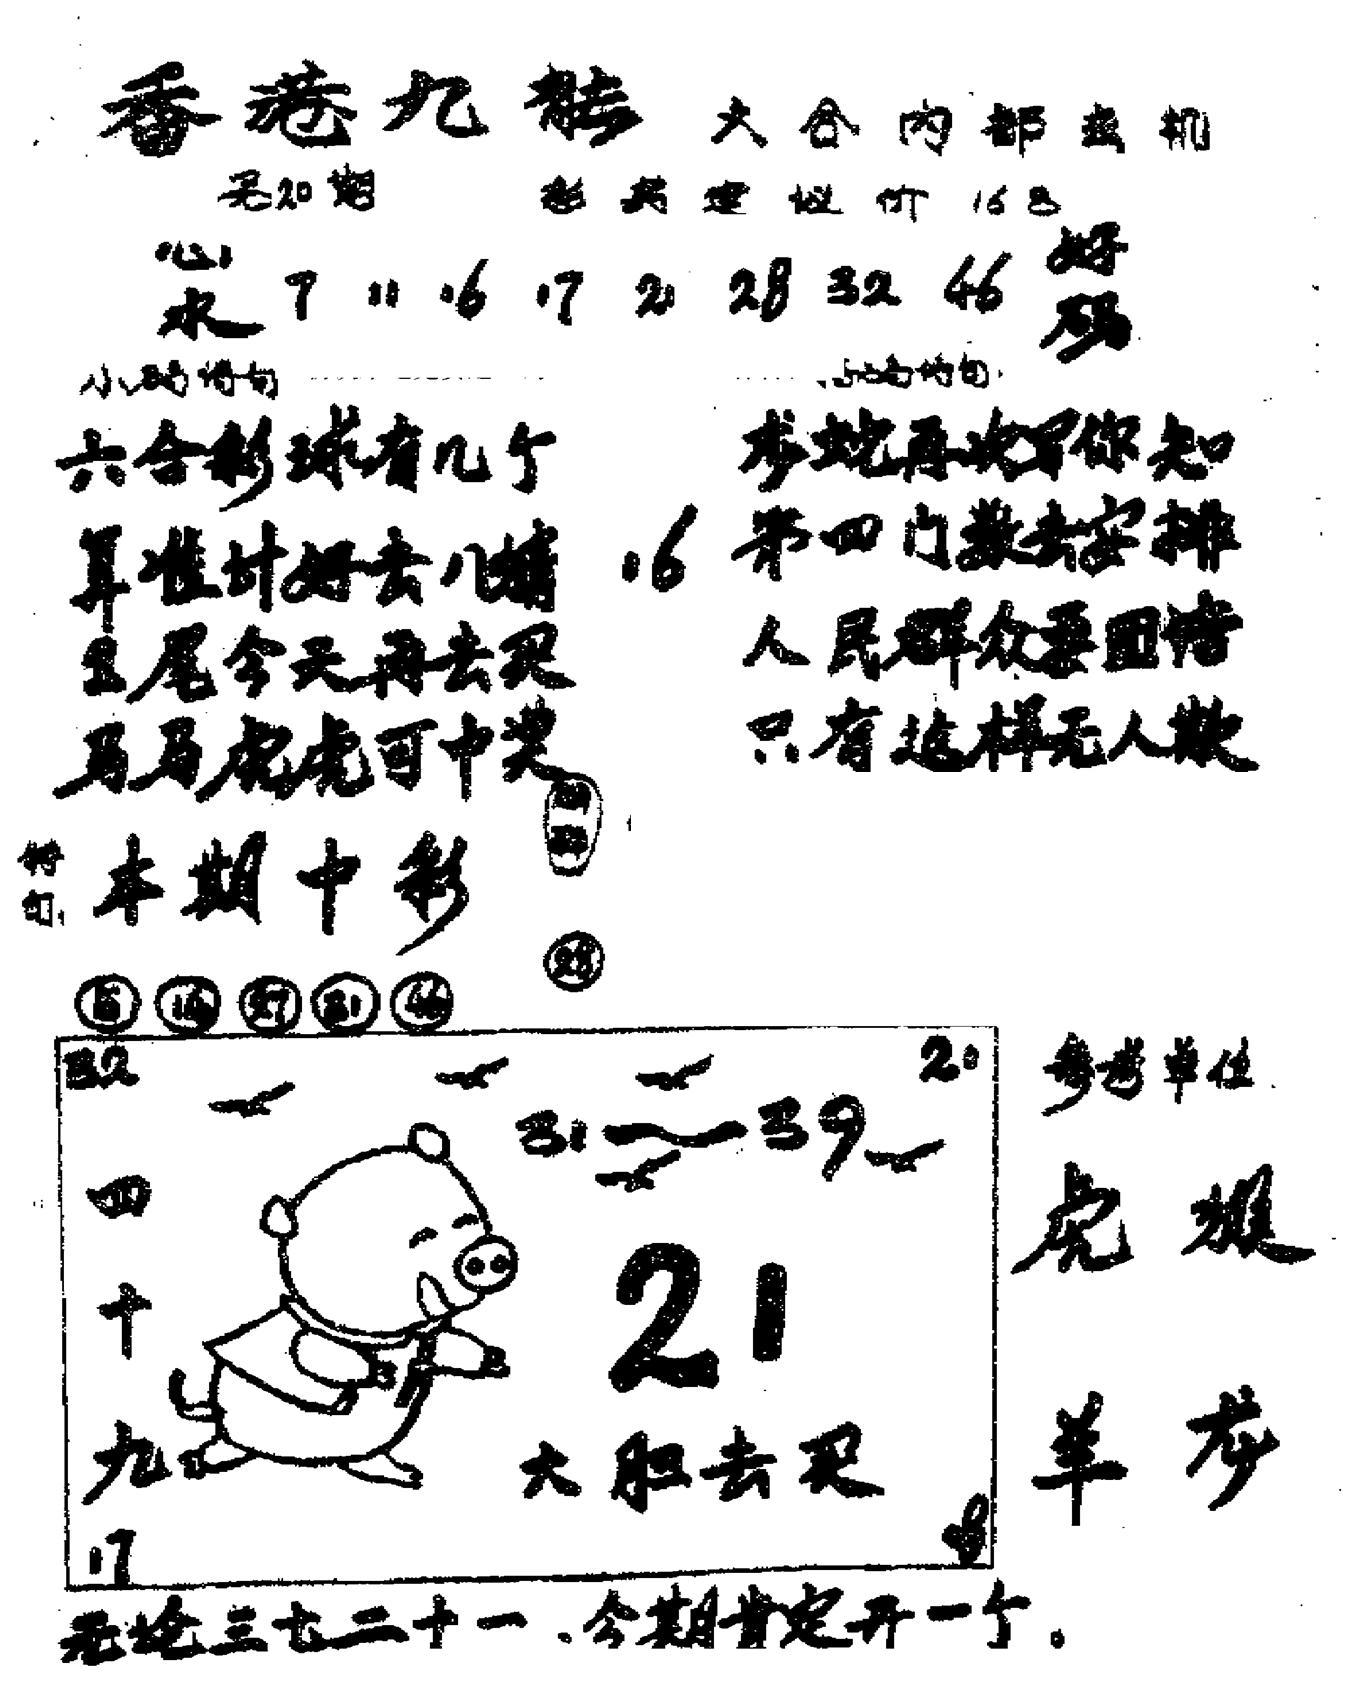 香港九龍 六合内部玄机
第20期 彩民建议价 16马
心水 7 11 16 17 21 28 32 46 好码
六合彩球有几个
算准计好去八猜
五尾今天再去买
马马虎虎可中奖
16
龙蛇再次军你知
第四门数去安排
人民群众要团结
只有这样无人欺
特句 本期中彩
28
5 16 27 31 46
32 21
31～39
四十九
21
大胆去买
17
参考单位
虎 猴
羊 龙
无论三七二十一、今期肯定开一个。